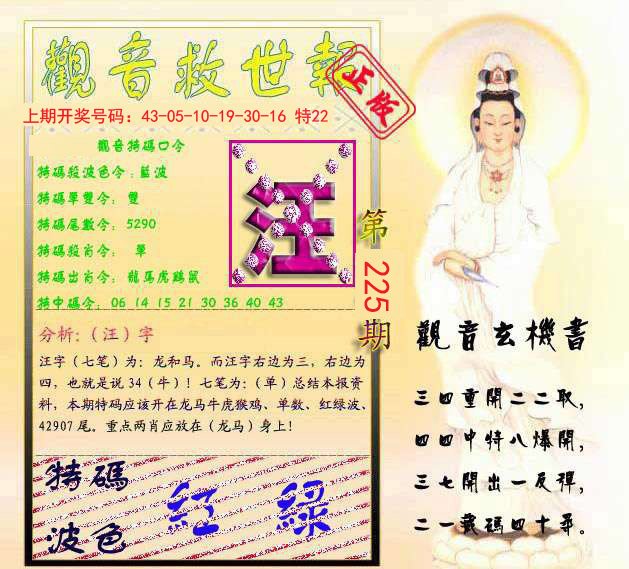 觀音救世報
正版
上期开奖号码：43-05-10-19-30-16 特22
觀音特碼口令
特碼殺波色令：藍波
特碼單雙令： 雙
特碼尾數令： 5290
特碼殺肖令： 單
特碼出肖令： 龍馬虎鷄鼠
特中碼令： 06 14 15 21 30 36 40 43
汪
第
225
期
分析：（汪）字
汪字（七笔）为：龙和马。而汪字右边为三，右边为
四，也就是说 34（牛）！七笔为：（单）总结本报资
料，本期特码应该开在龙马牛虎猴鸡、单数、红绿波、
42907 尾。重点两肖应放在（龙马）身上！
特碼
波色
紅 綠
觀音玄機書
三四重開二二取，
四四中特八爆開，
三七開出一反彈，
二一載碼四十尋。